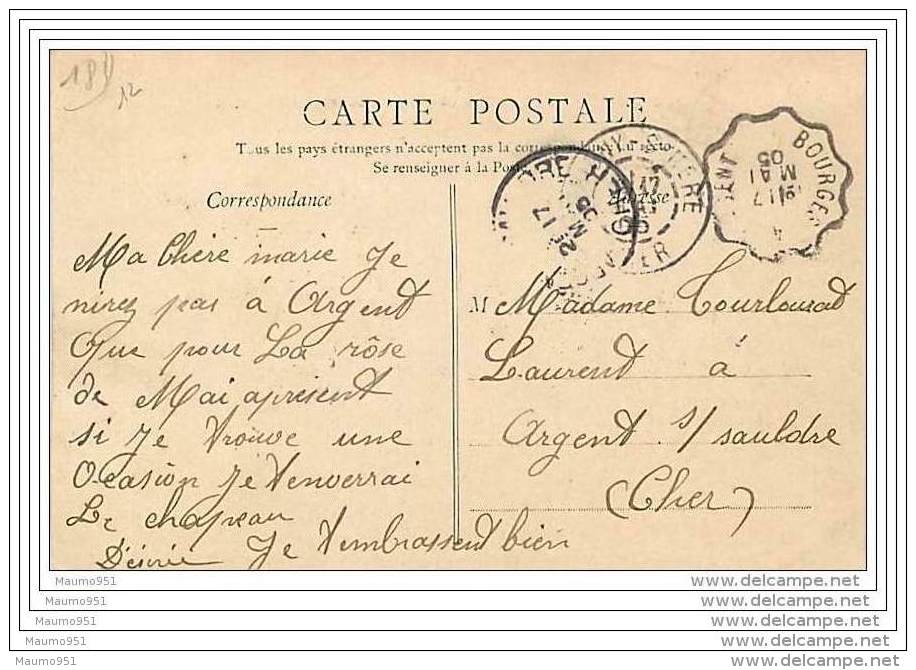 18
12
CARTE POSTALE
Tous les pays étrangers n'acceptent pas la correspondance au recto
Se renseigner à la Poste
Correspondance
Adresse
BOURGES
17
MAI
05
Ma Chère marie Je
nirez pas à Argent
Que pour La rôse
de Mai apresent
si Je trouve une
Ocasion Je tenverrai
Le chapeau
Désirée Je tembrassent bien
M Madame Tourlourat
Laurent à
Argent s/ sauldre
(Cher)
Maumo951 www.delcampe.net
Maumo951 www.delcampe.net
Maumo951 www.delcampe.net
Maumo951 www.delcampe.net
Maumo951 www.delcampe.net